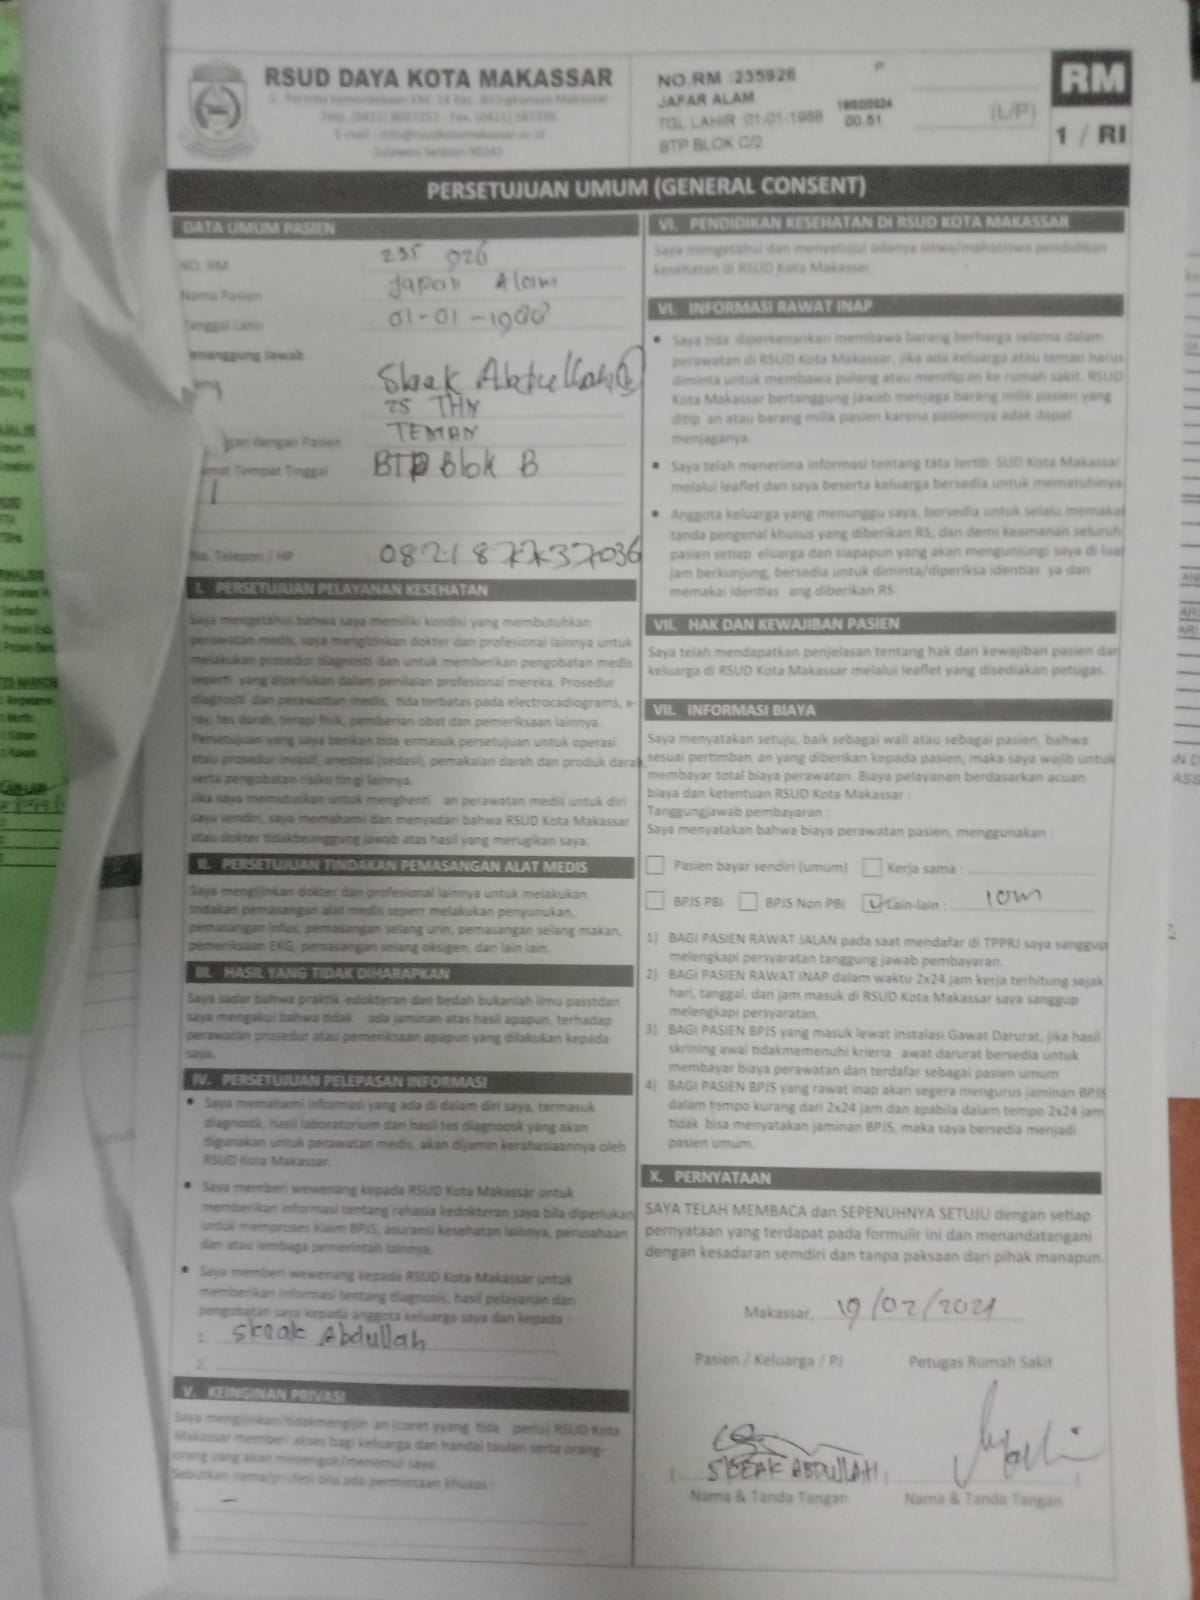 RSUD DAYA KOTA MAKASSAR
Jl. Perintis Kemerdekaan KM. 14 Kec. Biringkanaya Makassar
Sulawesi Selatan 90243
NO.RM :235926
JAFAR ALAM
TGL LAHIR :01-01-1988
BTP BLOK C/2
P
19/02/2024
00.51
(L/P)
RM
1 / RI
PERSETUJUAN UMUM (GENERAL CONSENT)
DATA UMUM PASIEN
NO. RM 235 926
Nama Pasien Japar Alam
Tanggal Lahir 01-01-1988
enanggung Jawab
Skeak Abdullah
25 THN
an dengan Pasien TEMAN
mat Tempat Tinggal BTP Blok B
No. Telepon / HP 082187737036
I. PERSETUJUAN PELAYANAN KESEHATAN
Saya mengetahui bahwa saya memiliki kondisi yang membutuhkan
perawatan medis, saya mengizinkan dokter dan profesional lainnya untuk
melakukan prosedur diagnosti dan untuk memberikan pengobatan medis
seperti yang diperlukan dalam penilaian profesional mereka. Prosedur
diagnosti dan perawattan medis, tida terbatas pada electrocadiograms, x-
ray, tes darah, terapi fisik, pemberian obat dan pemeriksaan lainnya.
Persetujuan yang saya berikan tida ermasuk persetujuan untuk operasi
atau prosedur invasif, anestesi (sedasi), pemakaian darah dan produk darah
serta pengobatan risiko tin gi lainnya.
Jika saya memutuskan untuk menghenti an perawatan medis untuk diri
saya sendiri, saya memahami dan menyadari bahwa RSUD Kota Makassar
atau dokter tidakbeanggung jawab atas hasil yang merugikan saya.
II. PERSETUJUAN TINDAKAN PEMASANGAN ALAT MEDIS
Saya mengijinkan dokter dan profesional lainnya untuk melakukan
tindakan pemasangan alat medis seperr melakukan penyunukan,
pemasangan infus, pemasangan selang urin, pemasangan selang makan,
pemeriksaan EKG, pemasangan selang oksigen, dan lain lain.
III. HASIL YANG TIDAK DIHARAPKAN
Saya sadar bahwa praktik edokteran dan bedah bukanlah ilmu passtdan
saya mengakui bahwa tidak ada jaminan atas hasil apapun, terhadap
perawatan prosedur atau pemeriksaan apapun yang dilakukan kepada
saya.
IV. PERSETUJUAN PELEPASAN INFORMASI
• Saya memahami informasi yang ada di dalam diri saya, termasuk
diagnostik, hasil laboratorium dan hasil tes diagnoosk yang akan
digunakan untuk perawatan medis, akan dijamin kerahasiaannya oleh
RSUD Kota Makassar.
• Saya memberi wewenang kepada RSUD Kota Makassar untuk
memberikan informasi tentang rahasia kedokteran saya bila diperlukan
untuk memproses klaim BPJS, asuransi kesehatan lainnya, perusahaan
dan atau lembaga pemerintah lainnya.
• Saya memberi wewenang kepada RSUD Kota Makassar untuk
memberikan informasi tentang diagnosis, hasil pelayanan dan
pengobatan saya kepada anggota keluarga saya dan kepada :
1. Skeak Abdullah
2.
V. KEINGINAN PRIVASI
Saya mengijinkan/tidakmengijin an (coret yyang tida perlu) RSUD Kota
Makassar memberi akses bagi keluarga dan handai taulan serta orang-
orang yang akan menengok/menemui saya.
Sebutkan nama/profesi bila ada permintaan khusus :
VI. PENDIDIKAN KESEHATAN DI RSUD KOTA MAKASSAR
Saya mengetahui dan menyetujui adanya siswa/mahasiswa pendidikan
kesehatan di RSUD Kota Makassar.
VI. INFORMASI RAWAT INAP
• Saya tida diperkenankan membawa barang berharga selama dalam
perawatan di RSUD Kota Makassar, jika ada keluarga atau teman harus
diminta untuk membawa pulang atau menitip an ke rumah sakit. RSUD
Kota Makassar bertanggung jawab menjaga barang milik pasien yang
ditip an atau barang milik pasien karena pasiennya adak dapat
menjaganya.
• Saya telah menerima informasi tentang tata tertib SUD Kota Makassar
melalui leaflet dan saya beserta keluarga bersedia untuk mematuhinya
• Anggota keluarga yang menunggu saya, bersedia untuk selalu memakai
tanda pengenal khusus yang diberikan RS, dan demi keamanan seluruh
pasien setiap eluarga dan siapapun yang akan mengunjungi saya di luar
jam berkunjung, bersedia untuk diminta/diperiksa identias ya dan
memakai identias ang diberikan RS.
VII. HAK DAN KEWAJIBAN PASIEN
Saya telah mendapatkan penjelasan tentang hak dan kewajiban pasien dan
keluarga di RSUD Kota Makassar melalui leaflet yang disediakan petugas.
VII. INFORMASI BIAYA
Saya menyatakan setuju, baik sebagai wali atau sebagai pasien, bahwa
sesuai pertimban an yang diberikan kepada pasien, maka saya wajib untuk
membayar total biaya perawatan. Biaya pelayanan berdasarkan acuan
biaya dan ketentuan RSUD Kota Makassar :
Tanggungjawab pembayaran :
Saya menyatakan bahwa biaya perawatan pasien, menggunakan :
Pasien bayar sendiri (umum) Kerja sama :
BPJS PBI BPJS Non PBI Lain-lain : IOM
1) BAGI PASIEN RAWAT JALAN pada saat mendafar di TPPRJ saya sanggup
melengkapi persyaratan tanggung jawab pembayaran.
2) BAGI PASIEN RAWAT INAP dalam waktu 2x24 jam kerja terhitung sejak
hari, tanggal, dan jam masuk di RSUD Kota Makassar saya sanggup
melengkapi persyaratan.
3) BAGI PASIEN BPJS yang masuk lewat Instalasi Gawat Darurat, jika hasil
skrining awal tidakmemenuhi krieria awat darurat bersedia untuk
membayar biaya perawatan dan terdafar sebagai pasien umum
4) BAGI PASIEN BPJS yang rawat inap akan segera mengurus jaminan BPJS
dalam tempo kurang dari 2x24 jam dan apabila dalam tempo 2x24 jam
tidak bisa menyatakan jaminan BPJS, maka saya bersedia menjadi
pasien umum.
X. PERNYATAAN
SAYA TELAH MEMBACA dan SEPENUHNYA SETUJU dengan setiap
pernyataan yang terdapat pada formulir ini dan menandatangani
dengan kesadaran semdiri dan tanpa paksaan dari pihak manapun.
Makassar, 19/02/2024
Pasien / Keluarga / PJ Petugas Rumah Sakit
SKEAK ABDULLAH
Nama & Tanda Tangan Nama & Tanda Tangan